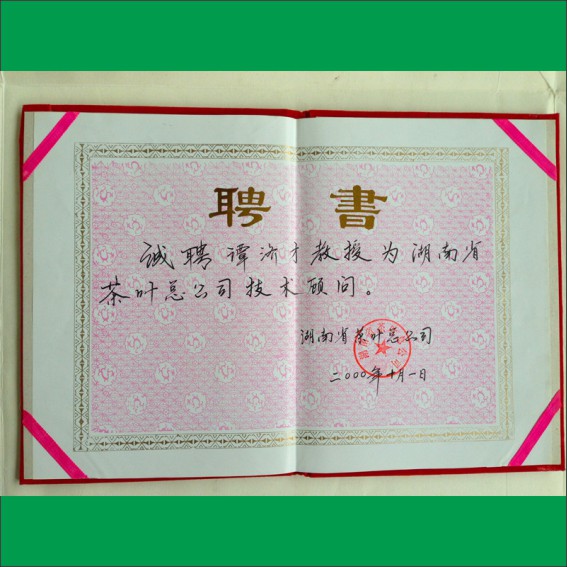 聘書
诚聘谭济才教授为湖南省
茶叶总公司技术顾问。
湖南省茶叶总公司
二000年十月一日